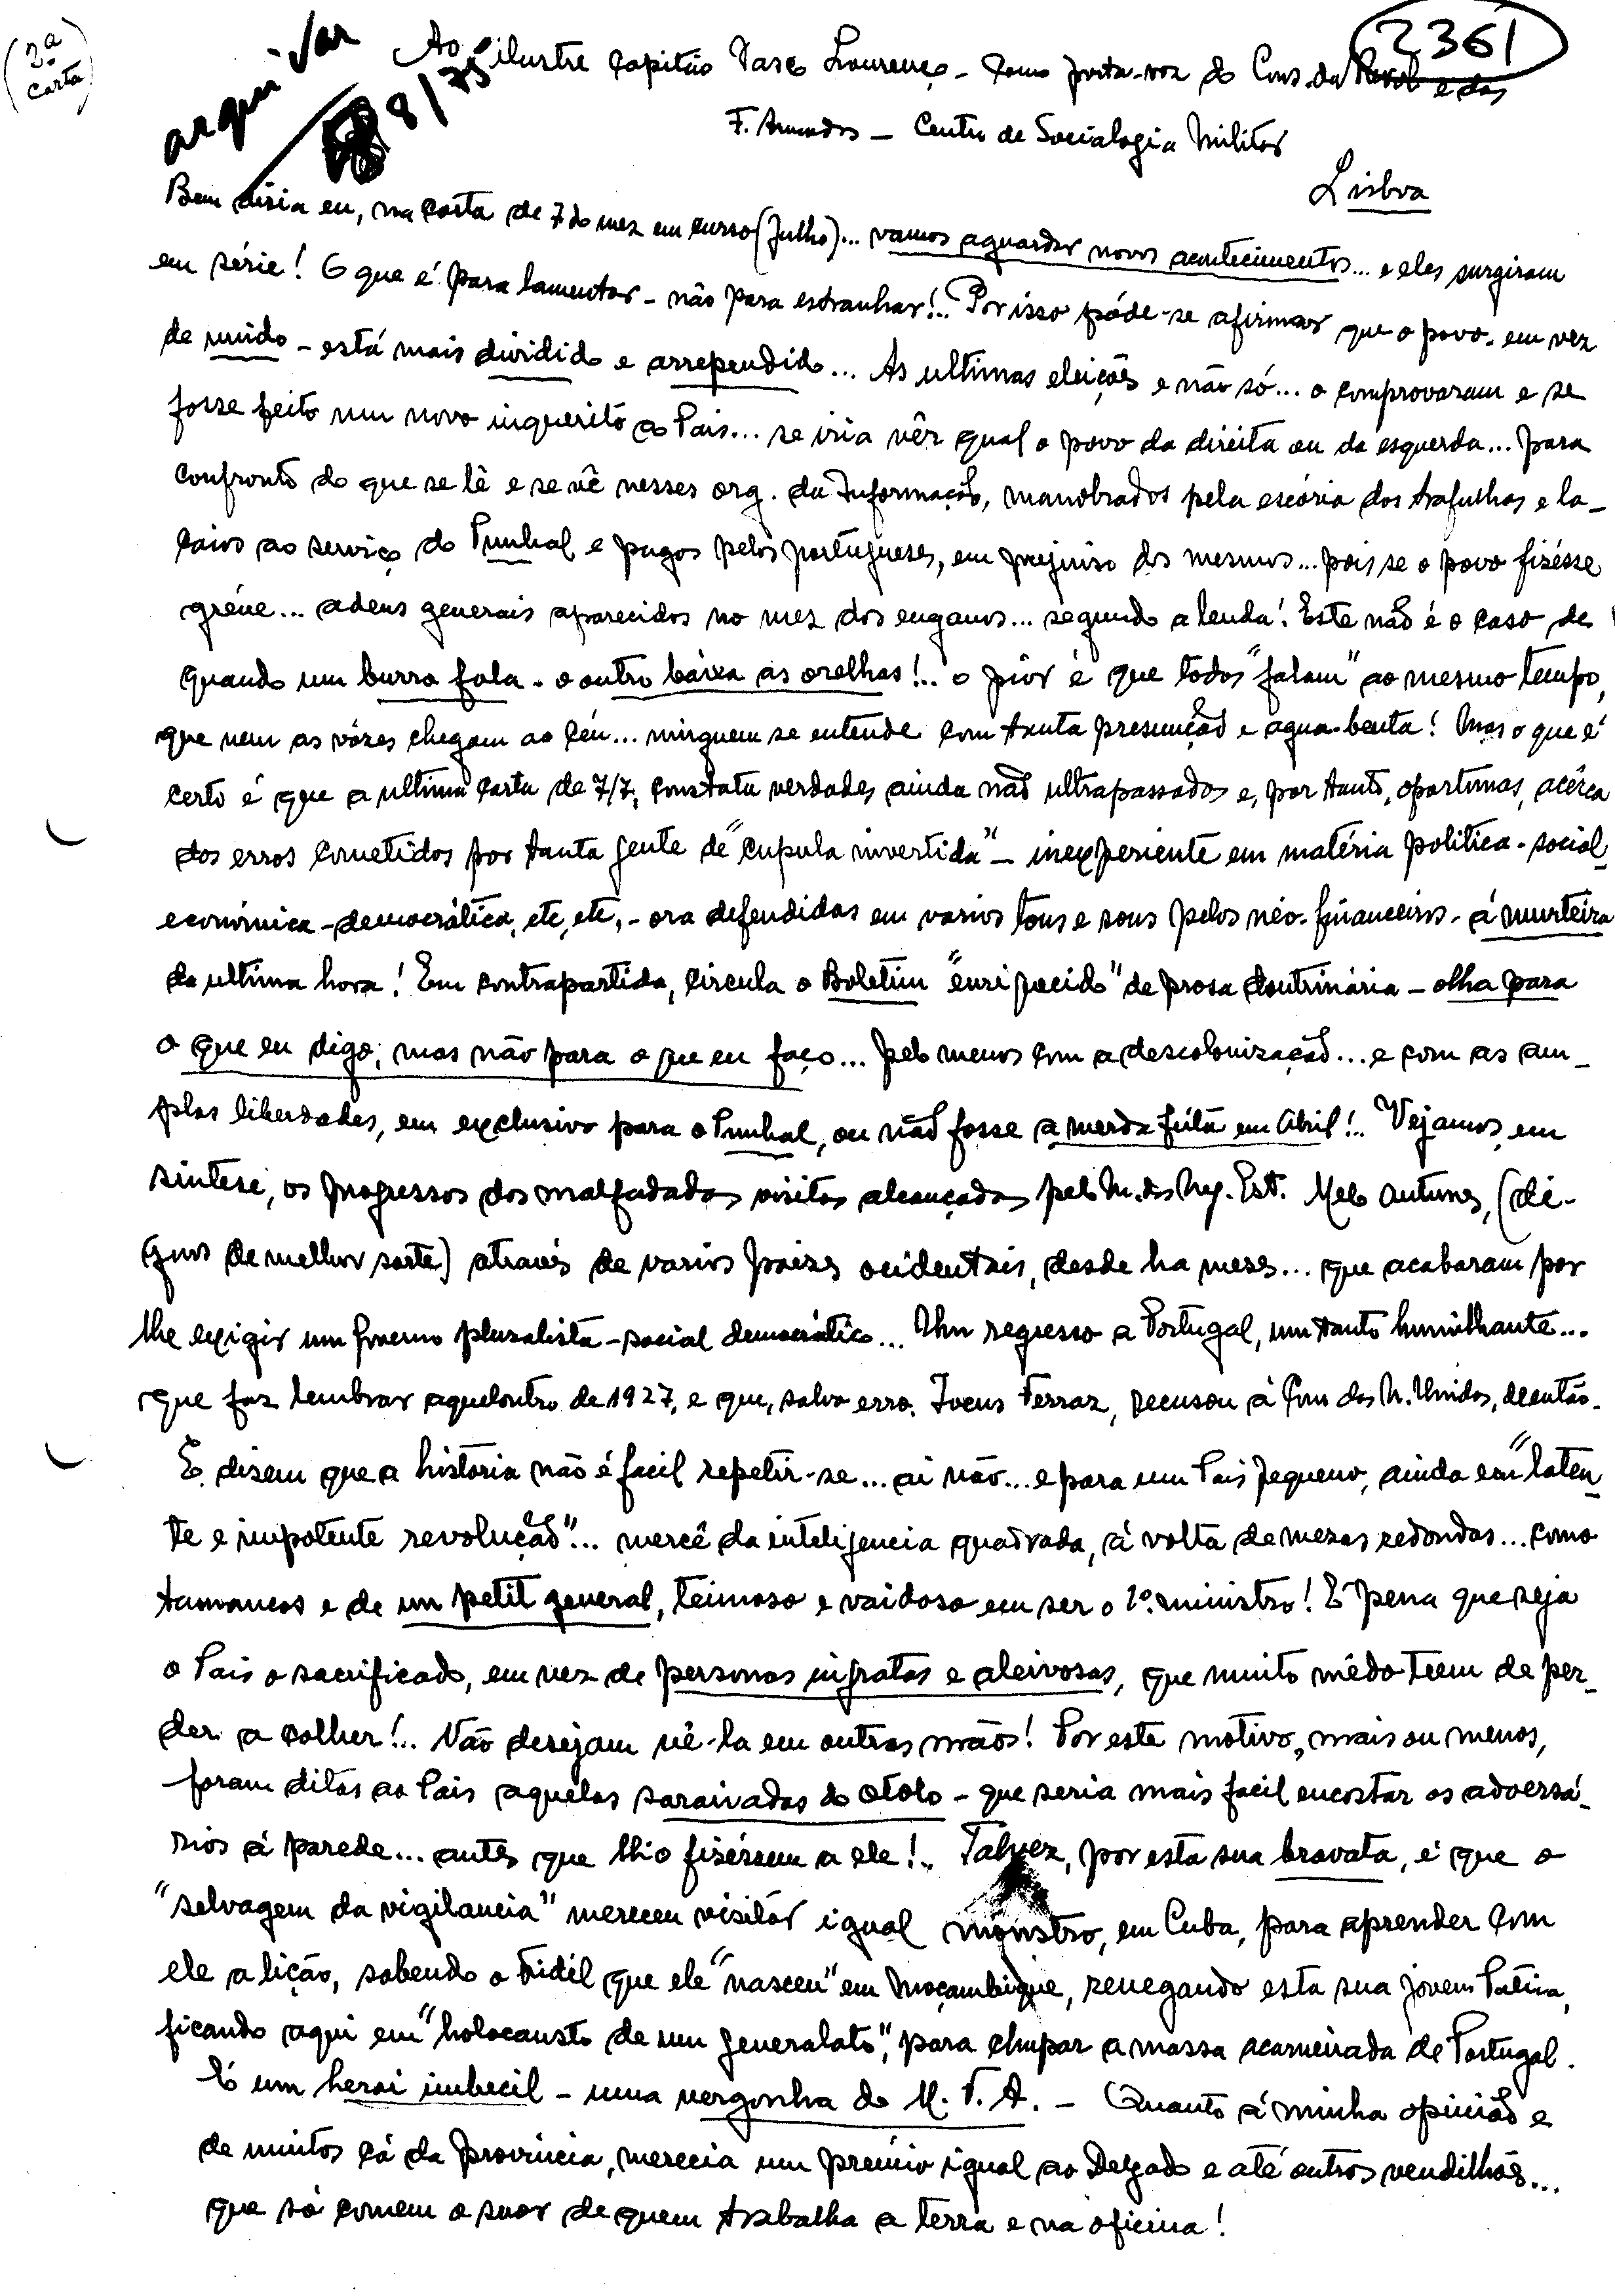 (2ª
carta)
arquivar
8/75
2361
Ao ilustre Capitão Vasco Lourenço - como porta-voz do Cons. da Revol e das
F. Armadas - Centro de Sociologia Militar
Lisboa
Bem diria eu, na carta de 7 do mez em curso (Julho)... vamos aguardar novos acontecimentos... e eles surgiram
em série! O que é para lamentar - não para estranhar!.. Por isso póde-se afirmar que o povo, em vez
de unido - está mais dividido e arrependido... As ultimas eleições e não só... o comprovaram e se
fosse feito um novo inquerito ao Pais... se iria vêr qual o povo da direita ou da esquerda... para
confronto do que se lê e se vê nesses org. da Informação, manobrados pela escória dos trafulhas e la-
caios ao serviço do Punhal e pagos pelos portugueses, em prejuiso dos mesmos... pois se o povo fizésse
gréve... adeus generais aparecidos no mez dos enganos... segundo a lenda! Este não é o caso de
quando um burro fala - o outro baixa as orelhas!.. o piór é que todos "falam" ao mesmo tempo,
que nem as vózes chegam ao Céu... ninguem se entende com tanta presunção e agua-benta! Mas o que é
certo é que a ultima carta de 7/7, constata verdades ainda não ultrapassadas e, por tanto, oportunas, acérca
dos erros cometidos por tanta gente de "cupula invertida" - inexperiente em matéria politica-social
económica-democrática, etc, etc, - ora defendidas em varios tons e sons pelos néo-financeiros - á murteira
da ultima hora! Em contrapartida, circula o Boletim "enriquecido" de prosa doutrinária - olha para
o que eu digo; mas não para o que eu faço... pelo menos com a descolonização... e com as am-
plas liberdades, em exclusivo para o Punhal, ou não fosse a merda feita em Abril!.. Vejamos, em
sintese, os progressos dos malfadadas visitas alcançadas pelo M. dos Neg. Est. Melo Antunes, (di-
gnos de melhor sorte) através de varios paizes ocidentais, desde ha mezes... que acabaram por
lhe exigir um governo pluralista-social democrático... Um regresso a Portugal, um tanto humilhante...
que faz lembrar aqueloutro de 1927, e que, salvo erro, Ivens Ferraz, recusou á Com das N. Unidas, de então.
E disem que a história não é facil repetir-se... ai não... e para um Pais pequeno, ainda em "laten-
te e impotente revolução"... mercê da inteligencia quadrada, á volta de mezas redondas... como
tamancos e de um petit general, teimoso e vaidoso em ser o 1º. ministro! É pena que seja
o Pais o sacrificado, em vez de personas ingratas e aleivosas, que muito mêdo teem de per-
der a colher!.. Não desejam vê-la em outras mãos! Por este motivo, mais ou menos,
foram ditas ao Pais aquelas saraivadas do otolo - que seria mais facil encostar os adversá-
rios á parede... antes que lhio fizéssem a ele!.. Talvez, por esta sua bravata, é que o
"selvagem da vigilancia" mereceu visitar igual monstro, em Cuba, para aprender com
ele a lição, sabendo o Fidél que ele "nasceu" em Moçambique, renegando esta sua jovem Pátria,
ficando aqui em "holocausto de um generalato", para chupar a massa acarneirada de Portugal.
É um heroi imbecil - uma vergonha do M. F. A. - Quanto á minha opinião e
de muitos cá da provincia, merecia um premio igual ao Delgado e até outros vendilhões...
que só comem o suor de quem trabalha a terra e na oficina!